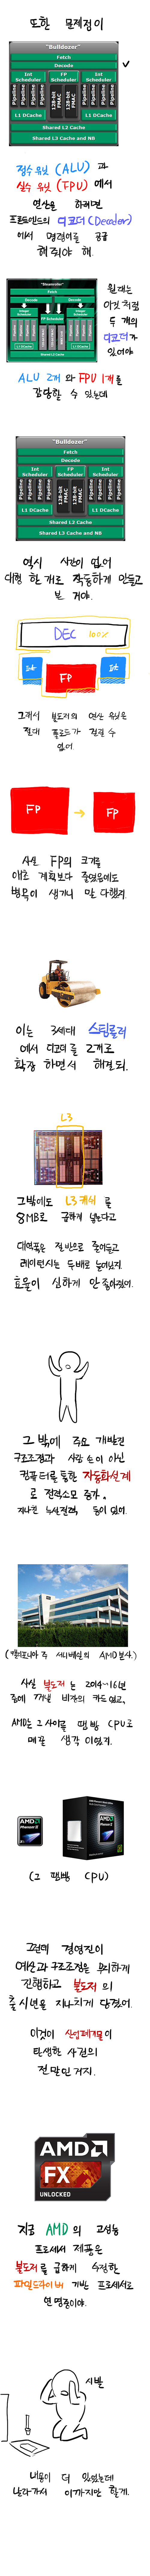 또한 문제점이
"Bulldozer"
Fetch
Decode
Int Scheduler
FP Scheduler
Int Scheduler
Pipeline
Pipeline
Pipeline
Pipeline
128-bit FMAC
128-bit FMAC
Pipeline
Pipeline
Pipeline
Pipeline
L1 DCache
L1 DCache
Shared L2 Cache
Shared L3 Cache and NB
정수 유닛 (ALU) 과
실수 유닛 (FPU) 에서
연산을 하려면
프론트엔드의 디코더 (Decoder)
에서 명령어를 공급
해줘야 해.
Fetch
Decode
Decode
FP Scheduler
Shared L2 Cache
원래는
이것처럼
두 개의
디코더가
있어야
ALU 2개 와 FPU 1개를
감당할 수 있는데
"Bulldozer"
Fetch
Decode
Int Scheduler
FP Scheduler
Int Scheduler
Pipeline
Pipeline
Pipeline
Pipeline
128-bit FMAC
128-bit FMAC
Pipeline
Pipeline
Pipeline
Pipeline
L1 DCache
L1 DCache
Shared L2 Cache
Shared L3 Cache and NB
역시 시간이 없어
대형 한 개로 작동하게 만들고
본 거야.
DEC 100%
Int
FP
Int
그래서 불도저의 연산 유닛은
절대 풀로드가 걸릴 수
없어
FP
FP
사실 FP의 크기를
애초 계획보다 줄였음에도
병목이 생기니 말 다했지.
이는 3세대 스팀롤러
에서 디코더를 2개로
확장 하면서 해결 돼.
L3
그 밖에도 L3캐시 를
8MB로 급하게 넣는다고
대역폭은 절반으로 줄어들고
레이턴시는 두배로 늘어났지.
효율이 심하게 안 좋아졌어.
그 밖에 주요 개발진
구조조정과 사람 손이 아닌
컴퓨터를 통한 자동화설계
로 전력소모 증가.
지나친 누설전력, 등이 있어.
(캘리포니아 주 서니베일의 AMD 본사.)
사실 불도저 는 2014~16년
쯤에 꺼낼 비장의 카드 였고,
AMD는 그 사이를 땜빵 CPU로
메꿀 생각 이었지.
AMD
Phenom II
AMD
(그 땜빵 CPU)
그런데 경영진이
예산과 구조조정을 무리하게
진행하고 불도저 의
출시년을 지나치게 당겼어.
이것이 산업폐기물이
탄생한 사건의
전말인 거지.
AMD
FX
UNLOCKED
지금 AMD 의 고성능
프로세서 제품은
불도저 를 급하게 수정한
파일드라이버 기반 프로세서로
연명중이야.
시발
내용이 더 있었는데
날라가서 여기까지만 할게.